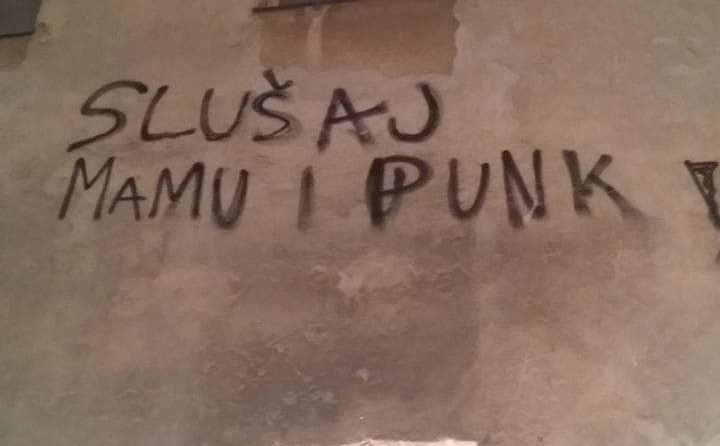 SLUŠAJ
MAMU I PUNK